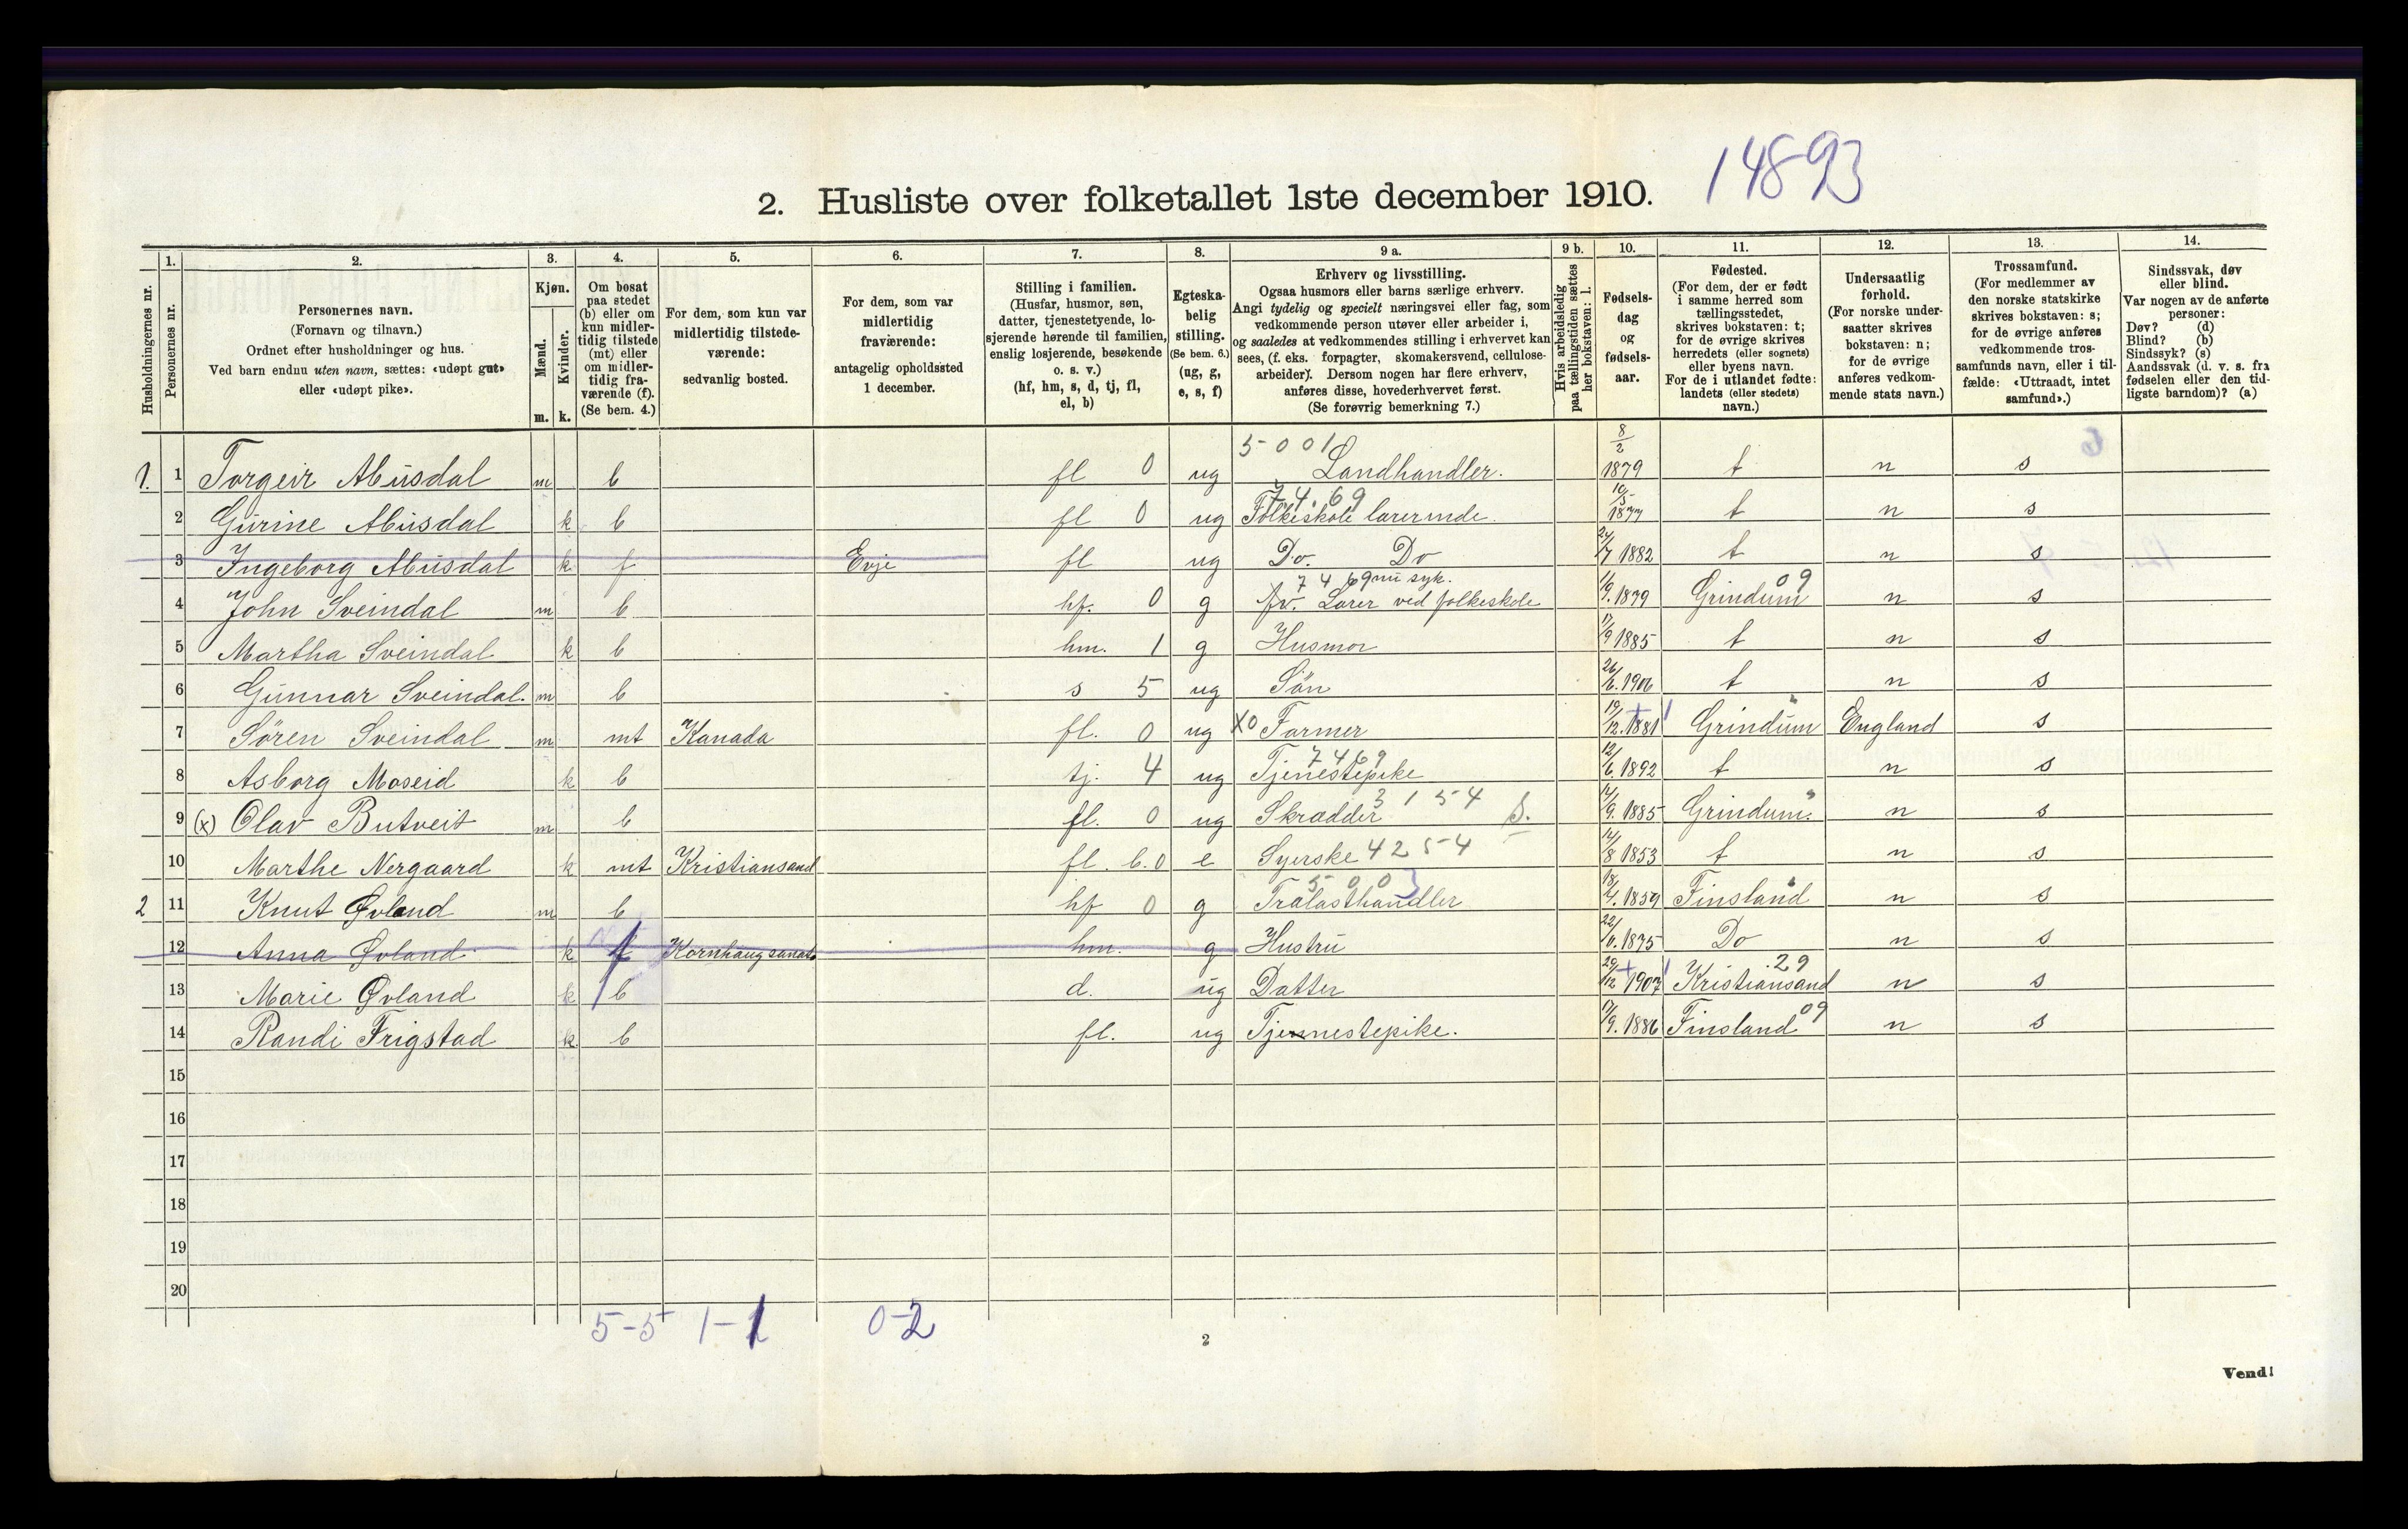 14893
2. Husliste over folketallet 1ste december 1910.
Husholdningernes nr.
1.
Personernes nr.
2.
Personernes navn.
(Fornavn og tilnavn.)
Ordnet efter husholdninger og hus.
Ved barn endnu uten navn, sættes: «udøpt gut»
eller «udøpt pike».
3.
Kjøn.
Mænd.
Kvinder.
m. k.
4.
Om bosat
paa stedet
(b) eller om
kun midler-
tidig tilstede
(mt) eller
om midler-
tidig fra-
værende (f).
(Se bem. 4.)
5.
For dem, som kun var
midlertidig tilstede-
værende:
sedvanlig bosted.
6.
For dem, som var
midlertidig
fraværende:
antagelig opholdssted
1 december.
7.
Stilling i familien.
(Husfar, husmor, søn,
datter, tjenestetyende, lo-
sjerende hørende til familien,
enslig losjerende, besøkende
o. s. v.)
(hf, hm, s, d, tj, fl,
el, b)
8.
Egteska-
belig
stilling.
(Se bem. 6.)
(ug, g,
e, s, f)
9 a.
Erhverv og livsstilling.
Ogsaa husmors eller barns særlige erhverv.
Angi tydelig og specielt næringsvei eller fag, som
vedkommende person utøver eller arbeider i,
og saaledes at vedkommendes stilling i erhvervet kan
sees, (f. eks. forpagter, skomakersvend, cellulose-
arbeider). Dersom nogen har flere erhverv,
anføres disse, hovederhvervet først.
(Se forøvrig bemerkning 7.)
9 b.
Hvis arbeidsledig
paa tællingstiden sættes
her bokstaven: l.
10.
Fødsels-
dag
og
fødsels-
aar.
11.
Fødested.
(For dem, der er født
i samme herred som
tællingsstedet,
skrives bokstaven: t;
for de øvrige skrives
herredets (eller sognets)
eller byens navn.
For de i utlandet fødte:
landets (eller stedets)
navn.)
12.
Undersaatlig
forhold.
(For norske under-
saatter skrives
bokstaven: n;
for de øvrige
anføres vedkom-
mende stats navn.)
13.
Trossamfund.
(For medlemmer av
den norske statskirke
skrives bokstaven: s;
for de øvrige anføres
vedkommende tros-
samfunds navn, eller i til-
fælde: «Uttraadt, intet
samfund».)
14.
Sindssvak, døv
eller blind.
Var nogen av de anførte
personer:
Døv? (d)
Blind? (b)
Sindssyk? (s)
Aandssvak (d. v. s. fra
fødselen eller den tid-
ligste barndom)? (a)
1. 1 Torgeir Abusdal m b fl 0 ug 5001 Landhandler. 8/2 1879 t n s
2 Gurine Abusdal k b fl 0 ug 7469 Folkeskole lærerinde. 10/5 1877 t n s
3 Ingeborg Abusdal k f Evje fl ug Do. Do 24/7 1882 t n s
4 John Sveindal m b hf. 0 g 7469 nu syk. fv. Lærer ved folkeskole 1/9. 1879 Grindum 09 n s
5 Martha Sveindal k b hm. 1 g Husmor 11/9 1885 t n s
6 Gunnar Sveindal. m b s 5 ug Sön 26/6. 1906 t n s
7 Søren Sveindal m mt Kanada fl. 0 ug X0 Farmer 19/12. 1881 Grindum England s
8 Asborg Moseid k b tj. 4 ug 7469 Tjenestepike 12/6. 1892 t n s
9 (x) Olav Butveit m b fl. 0 ug Skrædder 3154 14/9. 1885 Grindum. n s
10 Marthe Nergaard k mt Kristiansand fl. b. 0 e Syerske 4254 14/8 1853 t n s
2 11 Knut Øvland m b hf 0 g 5003 Trælasthandler 18/4. 1859 Finsland n s
12 Anna Øvland k f Kornhaug sanat. hm. g Hustru 1875 Do n s
13 Marie Øvland k b d. ug Datter 29/12 1907 Kristiansand 29 n s
14 Randi Frigstad k b fl. ug Tjennestepike. 17/9. 1886 Finsland 09 n s
15
16
17
18
19
20
5-5 1-1 0-2
2
Vend!